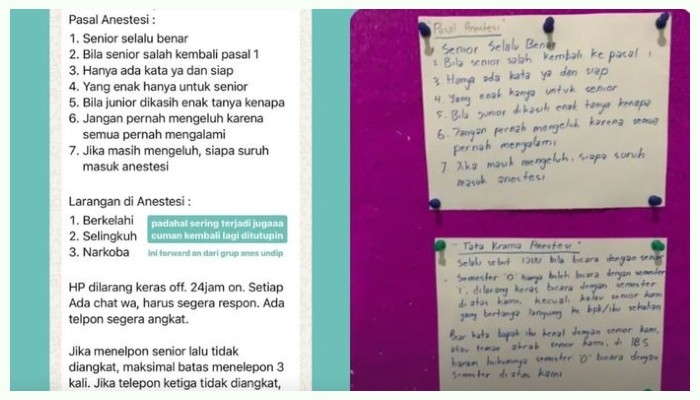 Pasal Anestesi :
1. Senior selalu benar
2. Bila senior salah kembali pasal 1
3. Hanya ada kata ya dan siap
4. Yang enak hanya untuk senior
5. Bila junior dikasih enak tanya kenapa
6. Jangan pernah mengeluh karena
semua pernah mengalami
7. Jika masih mengeluh, siapa suruh
masuk anestesi
Larangan di Anestesi :
1. Berkelahi
2. Selingkuh
3. Narkoba
padahal sering terjadi jugaaa
cuman kembali lagi ditutupin
ini forward an dari grup anes undip
HP dilarang keras off. 24jam on. Setiap
Ada chat wa, harus segera respon. Ada
telpon segera angkat.
Jika menelpon senior lalu tidak
diangkat, maksimal batas menelepon 3
kali. Jika telepon ketiga tidak diangkat,
"Pasal Anestesi"
1. Senior Selalu Benar
2. Bila senior salah kembali ke pasal 1
3. Hanya ada kata ya dan siap
4. Yang enak hanya untuk senior
5. Bila junior dikasih enak tanya kenapa
6. Jangan pernah mengeluh karena semua
pernah mengalami
7. Jika masih mengeluh, siapa suruh
masuk anestesi
"Tata Krama Anestesi"
Selalu sebut izin bila bicara dengan senior
Semester "0" hanya boleh bicara dengan semester
1, dilarang keras bicara dengan semester
di atas kami, kecuali kalau senior kami
yang bertanya langsung ke bpk/ibu sekalian
Biar kata bapak ibu kenal dengan senior kami,
atau teman akrab senior kami, di IBS
haram hukumnya semester "0" bicara dengan
semester di atas kami